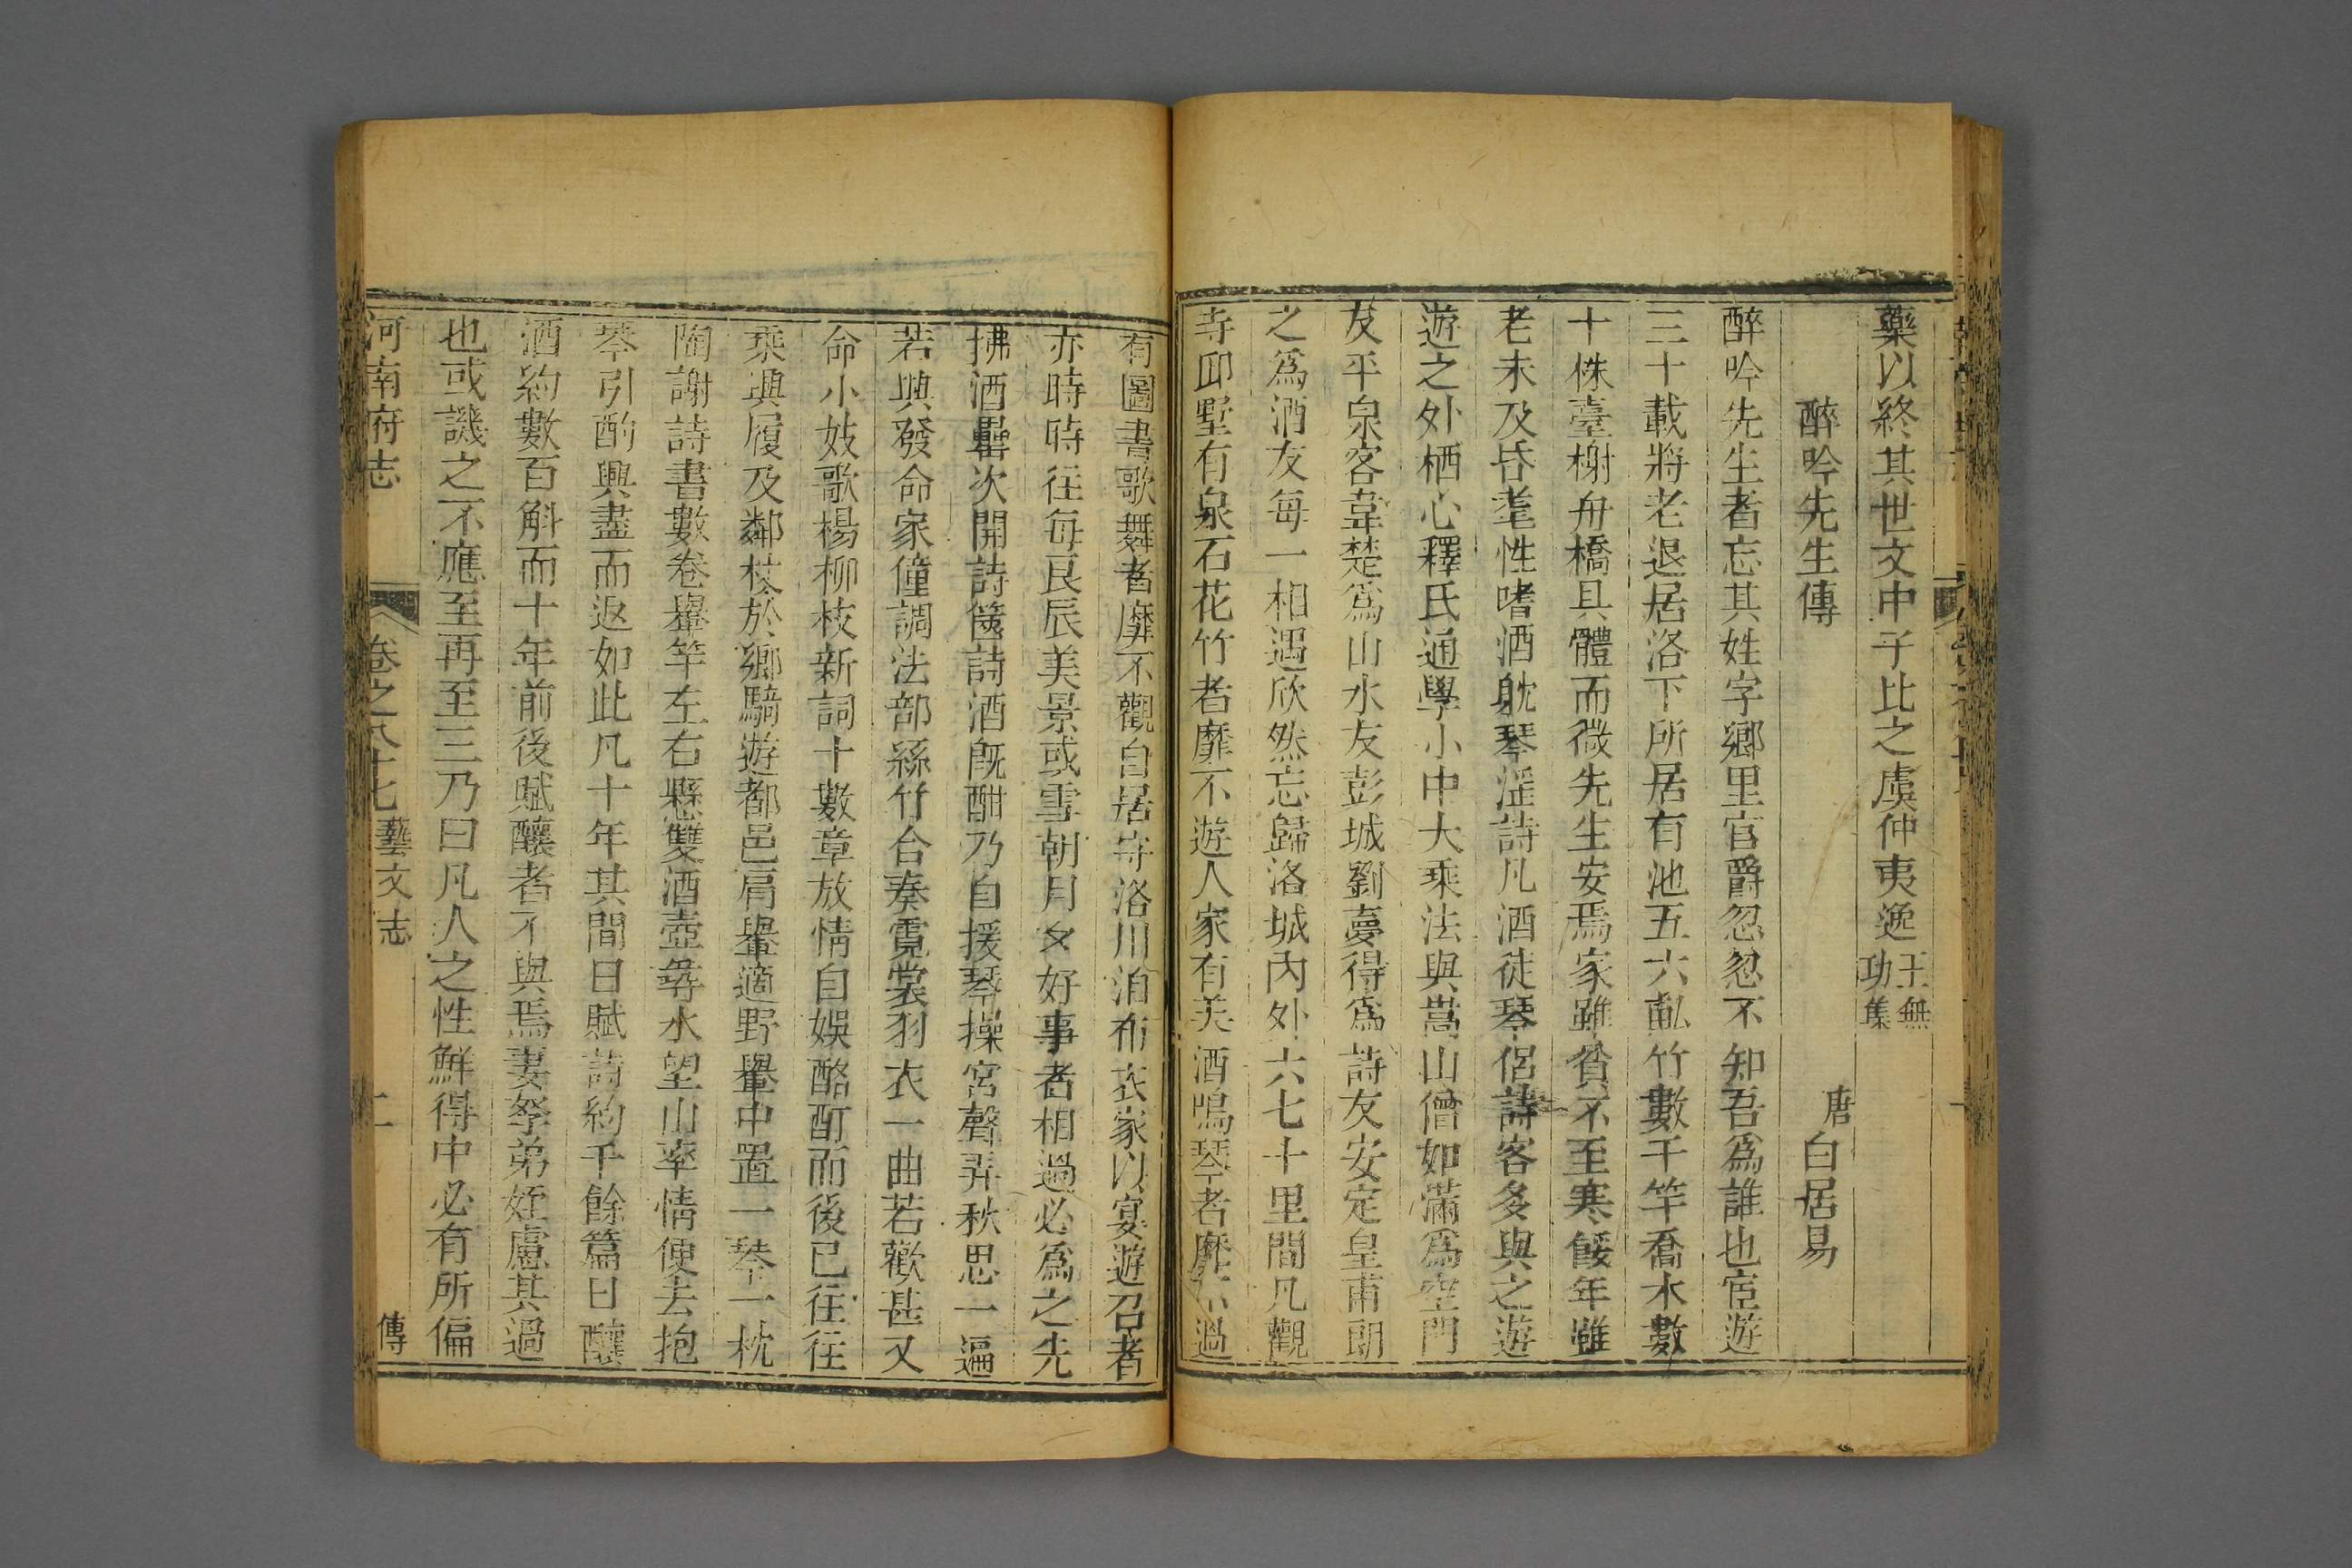 藥以終其世文中子比之虞仲夷逸王無功集
醉吟先生傳　唐白居易
醉吟先生者忘其姓字鄉里官爵忽忽不知吾爲誰也宦遊
三十載將老退居洛下所居有池五六畝竹數千竿喬木數
十株臺榭舟橋具體而微先生安焉家雖貧不至寒餒年雖
老未及昏耄性嗜酒躭琴淫詩凡酒徒琴侶詩客多與之遊
遊之外栖心釋氏通學小中大乘法與嵩山僧如滿爲空門
友平泉客韋楚爲山水友彭城劉夢得爲詩友安定皇甫朗
之爲酒友每一相遇欣然忘歸洛城內外六七十里間凡觀
寺邱墅有泉石花竹者靡不遊人家有美酒鳴琴者靡不過
有圖書歌舞者靡不觀自居守洛川泊布衣家以宴遊召者
亦時時往每良辰美景或雪朝月夕好事者相過必爲之先
拂酒罍次開詩篋詩酒旣酣乃自援琴操宮聲弄秋思一遍
若興發命家僮調法部絲竹合奏霓裳羽衣一曲若歡甚又
命小妓歌楊柳枝新詞十數章放情自娛酩酊而後已往往
乘興屨及鄰杖於鄉騎遊都邑肩轝適野轝中置一琴一枕
陶謝詩書數卷轝竿左右懸雙酒壺尋水望山率情便去抱
琴引酌興盡而返如此凡十年其間日賦詩約千餘篇日釀
酒約數百斛而十年前後賦釀者不與焉妻孥弟姪慮其過
也或譏之不應至再至三乃曰凡人之性鮮得中必有所偏
河南府志　卷之八十七　藝文志　傳　十一